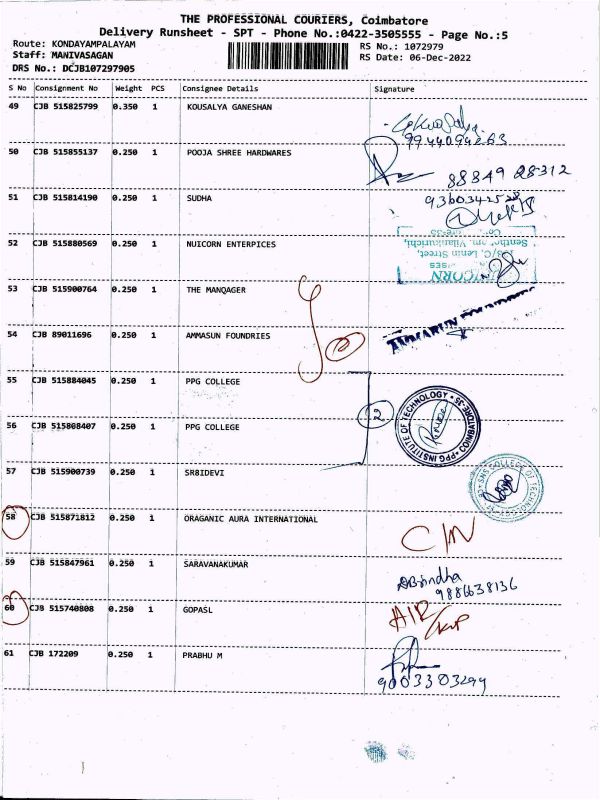 THE PROFESSIONAL COURIERS, Coimbatore
Delivery Runsheet - SPT - Phone No.:0422-3505555 - Page No.:5
Route: KONDAYAMPALAYAM
RS No.: 1072979
Staff: MANIVASAGAN
RS Date: 06-Dec-2022
DRS No.: DCJB107297905
S No Consignment No Weight PCS Consignee Details Signature
49 CJB 515825799 0.350 1 KOUSALYA GANESHAN
9944094263
50 CJB 515855137 0.250 1 POOJA SHREE HARDWARES
88849 28312
51 CJB 515814190 0.250 1 SUDHA
52 CJB 515880569 0.250 1 NUICORN ENTERPICES
53 CJB 515900764 0.250 1 THE MANQAGER
54 CJB 89011696 0.250 1 AMMASUN FOUNDRIES
AMMARUN FOUNDRIES
55 CJB 515884045 0.250 1 PPG COLLEGE
56 CJB 515808407 0.250 1 PPG COLLEGE
2
PPG INSTITUTE OF TECHNOLOGY * COIMBATORE-35
57 CJB 515900739 0.250 1 SR8IDEVI
SNS COLLEGE OF TECHNOLOGY
58 CJB 515871812 0.250 1 ORAGANIC AURA INTERNATIONAL
C/N
59 CJB 515847961 0.250 1 SARAVANAKUMAR
9886638136
60 CJB 515740808 0.250 1 GOPASL
61 CJB 172209 0.250 1 PRABHU M
9003303299